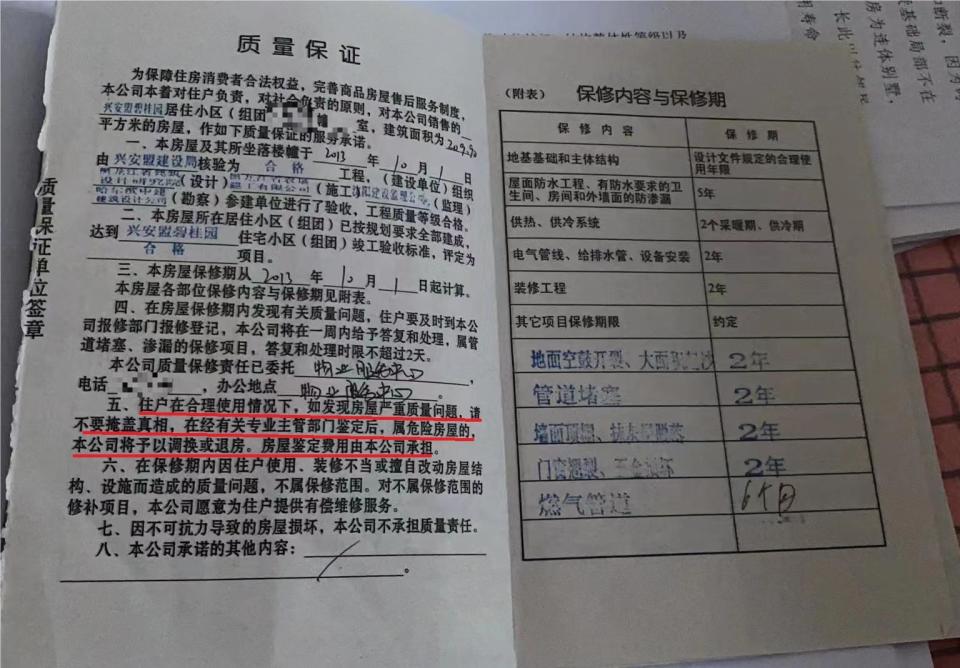 质量保证
为保障住房消费者合法权益，完善商品房屋售后服务制度，
本公司本着对住户负责，对社会负责的原则，对本公司销售的
兴安盟碧桂园居住小区（组团 室，建筑面积为209.90
平方米的房屋，作如下质量保证的服务承诺。
一、本房屋及其所坐落楼幢于 2013 年 10 月 1 日
由 兴安盟建设局核验为 合格 工程，（建设单位）组织
（设计） （施工 沈阳建设监理公司 （监理）
（勘察）参建单位进行了验收，工程质量等级合格。
二、本房屋所在居住小区（组团）已按规划要求全部建成，
达到 兴安盟碧桂园 住宅小区（组团）竣工验收标准，评定为
合格 项目。
三、本房屋保修期从 2013 年 10 月 1 日起计算。
本房屋各部位保修内容与保修期见附表。
四、在房屋保修期内发现有关质量问题，住户要及时到本公
司报修部门报修登记，本公司将在一周内给予答复和处理，属管
道堵塞、渗漏的保修项目，答复和处理时限不超过2天。
本公司质量保修责任已委托 物业服务中心 ，
电话 ，办公地点 物业服务中心 。
五、住户在合理使用情况下，如发现房屋严重质量问题，请
不要掩盖真相，在经有关专业主管部门鉴定后，属危险房屋的，
本公司将予以调换或退房。房屋鉴定费用由本公司承担。
六、在保修期内因住户使用、装修不当或擅自改动房屋结
构、设施而造成的质量问题，不属保修范围。对不属保修范围的
修补项目，本公司愿意为住户提供有偿维修服务。
七、因不可抗力导致的房屋损坏，本公司不承担质量责任。
八、本公司承诺的其他内容：
质量保证单位签章
（附表） 保修内容与保修期
保修内容 保修期
地基基础和主体结构 设计文件规定的合理使
用年限
屋面防水工程、有防水要求的卫
生间、房间和外墙面的防渗漏 5年
供热、供冷系统 2个采暖期、供冷期
电气管线、给排水管、设备安装 2年
装修工程 2年
其它项目保修期限 约定
地面空鼓开裂、大面积起沙 2年
管道堵塞 2年
墙面顶棚、抹灰层脱落 2年
门窗翘裂、五金损坏 2年
燃气管道 6个月